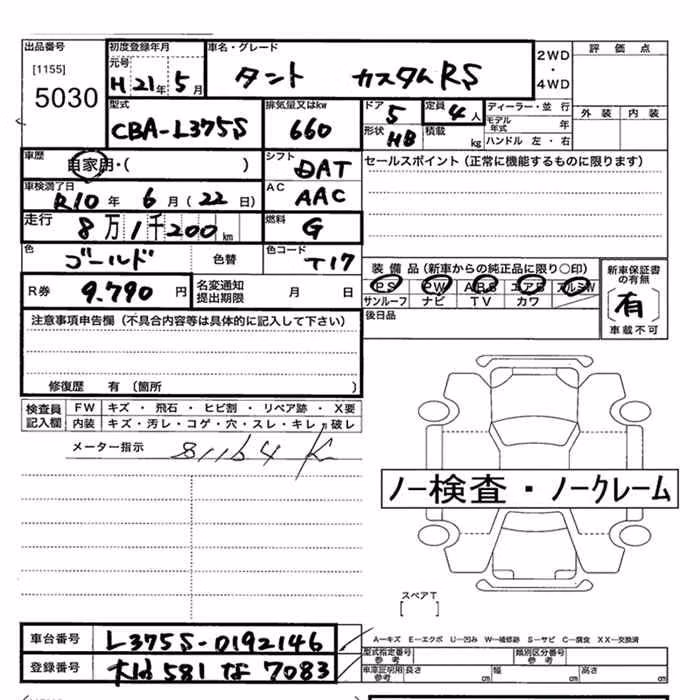 出品番号
[1155]
5030
初度登録年月
元号
H 21年 5月
車名・グレード
タント カスタムRS
2WD
・
4WD
評価点
外装 内装
型式
CBA-L375S
排気量又はkw
660
ドア
5
形状
HB
定員
4人
積載
kg
ディーラー・並行
モデル年式 年
ハンドル 左・右
車歴
自家用・( )
シフト
DAT
セールスポイント（正常に機能するものに限ります）
車検満了日
R10年 6月（22日）
AC
AAC
走行
8万1千200km
燃料
G
色
ゴールド
色替
色コード
T17
装備品（新車からの純正品に限り○印）
PS PW ABS エアB アルミW
サンルーフ ナビ TV カワ
新車保証書の有無
有
車載不可
R券
9.790円
名変通知
提出期限
月 日
後日品
注意事項申告欄（不具合内容等は具体的に記入して下さい）
修復歴 有〔箇所 〕
検査員
記入欄
FW キズ・飛石・ヒビ割・リペア跡・X要
内装 キズ・汚レ・コゲ・穴・スレ・キレ・破レ
メーター指示 81164 K
ノー検査・ノークレーム
スペアT
[ ]
A－キズ E－エクボ U－凹み W－補修跡 S－サビ C－腐食 XX－交換済
車台番号
L375S-0192146
型式指定番号
参考
類別区分番号
参考
登録番号
581 な 7083
車庫証明用
参考
長さ cm 幅 cm 高さ cm